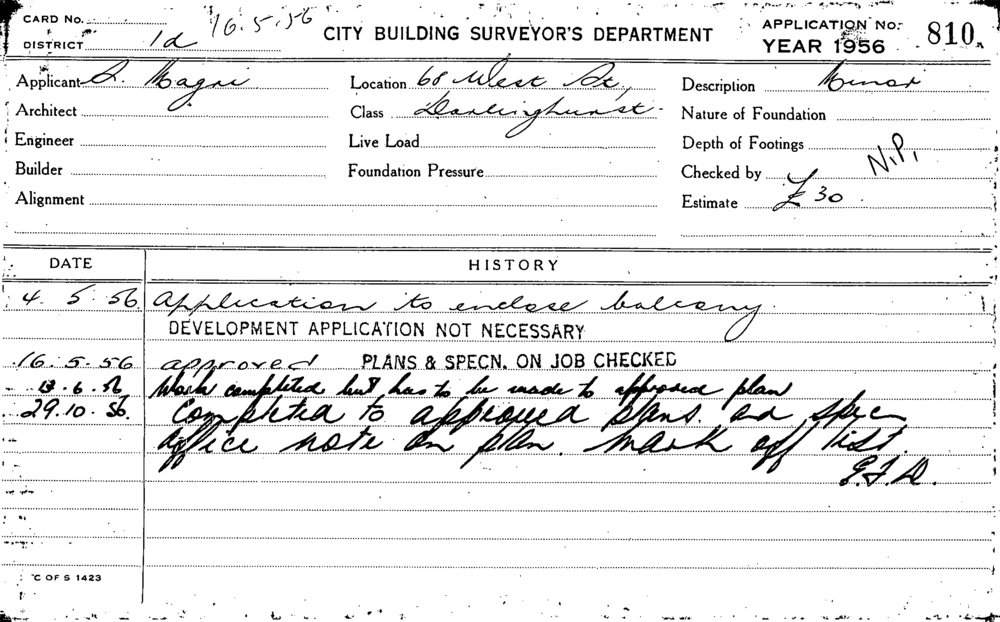 CARD No. 16.5.56 CITY BUILDING SURVEYOR'S DEPARTMENT APPLICATION No. 810
DISTRICT 1d YEAR 1956
Applicant A. Magri Location 68 West St, Description Minor
Architect Class Darlinghurst Nature of Foundation
Engineer Live Load Depth of Footings
Builder Foundation Pressure Checked by N.P.
Alignment Estimate £30
DATE HISTORY
4.5.56 Application to enclose balcony.
DEVELOPMENT APPLICATION NOT NECESSARY
16.5.56 approved PLANS & SPECN. ON JOB CHECKED
6.56 Work completed but has to be made to approved plan
29.10.56. Completed to approved plans. and specn
office note on plan. mark off list.
G.F.D.
C OF S 1423